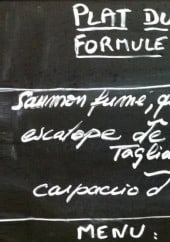 PLAT DU
FORMULE
Saumon fumé,
escalope de
Taglia
carpaccio d
MENU: